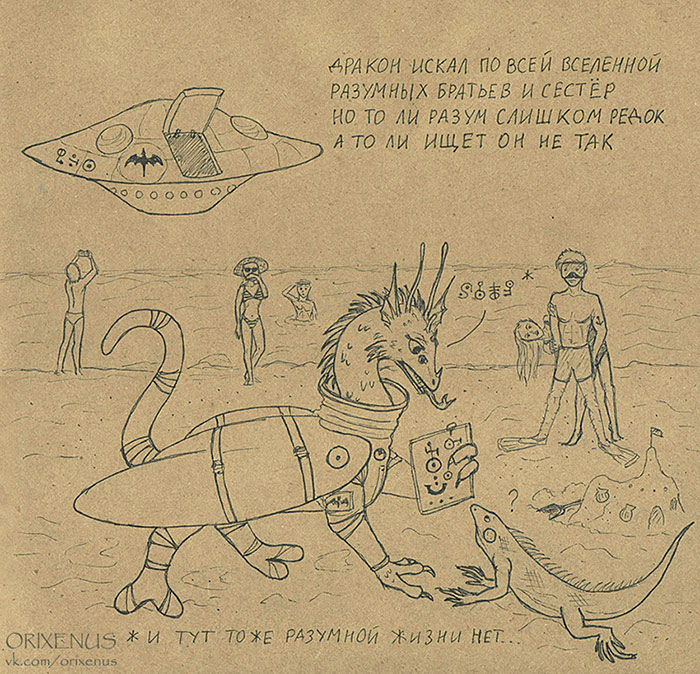 ДРАКОН ИСКАЛ ПО ВСЕЙ ВСЕЛЕННОЙ
РАЗУМНЫХ БРАТЬЕВ И СЕСТЁР
НО ТО ЛИ РАЗУМ СЛИШКОМ РЕДОК
А ТО ЛИ ИЩЕТ ОН НЕ ТАК
*
?
* И ТУТ ТОЖЕ РАЗУМНОЙ ЖИЗНИ НЕТ...
ORIXENUS
vk.com/orixenus